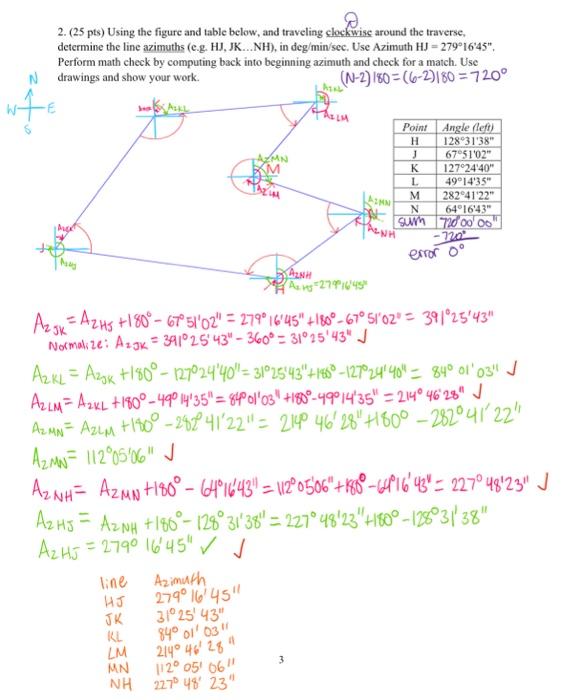 2. (25 pts) Using the figure and table below, and traveling clockwise around the traverse,
determine the line azimuths (e.g. HJ, JK…NH), in deg/min/sec. Use Azimuth HJ = 279°16'45".
Perform math check by computing back into beginning azimuth and check for a match. Use
drawings and show your work.
(N-2)180=(6-2)180=720°
N
W E
S
AZKL
AZKL
L
AZLM
K
AZMN
M
AZLM
AZMN
N
AZNH
J
AZHJ
AZNH
H AZHJ=279°16'45"
Point Angle (left)
H 128°31'38"
J 67°51'02"
K 127°24'40"
L 49°14'35"
M 282°41'22"
N 64°16'43"
sum 720°00'00"
-720°
error 0°
AZJK = AZHJ +180° - 67°51'02" = 279°16'45" +180° - 67°51'02" = 391°25'43"
Normalize: AZJK = 391°25'43" - 360° = 31°25'43" ✓
AZKL = AZJK +180° - 127°24'40" = 31°25'43" +180° - 127°24'40" = 84°01'03" ✓
AZLM = AZKL +180° - 49°14'35" = 84°01'03" +180° - 49°14'35" = 214°46'28" ✓
AZMN = AZLM +180° - 282°41'22" = 214°46'28" +180° - 282°41'22"
AZMN = 112°05'06" ✓
AZNH = AZMN +180° - 64°16'43" = 112°05'06" +180° - 64°16'43" = 227°48'23" ✓
AZHJ = AZNH +180° - 128°31'38" = 227°48'23" +180° - 128°31'38"
AZHJ = 279°16'45" ✓ ✓
line Azimuth
HJ 279°16'45"
JK 31°25'43"
KL 84°01'03"
LM 214°46'28"
MN 112°05'06"
NH 227°48'23"
3